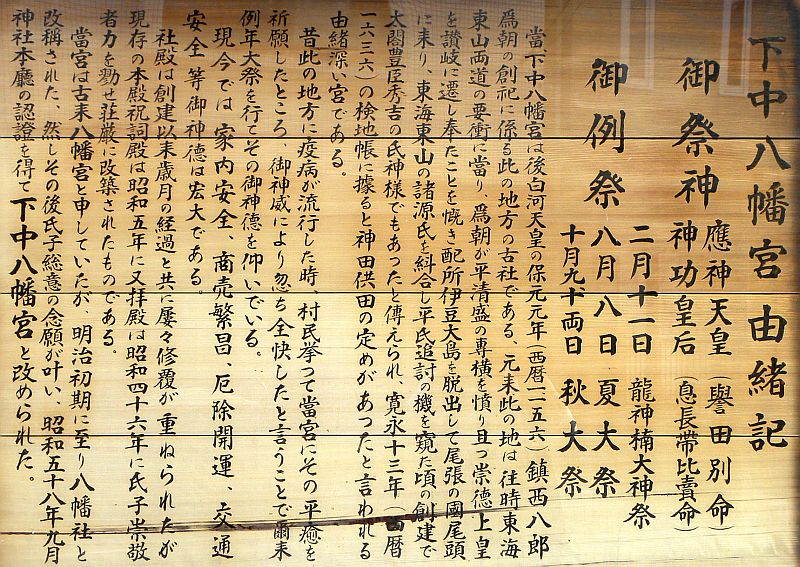 下中八幡宮由緒記
御祭神 應神天皇（譽田別命）
神功皇后（息長帯比賣命）
御例祭 二月十一日 龍神楠大神祭
八月八日 夏大祭
十月九十両日 秋大祭
當下中八幡宮は後白河天皇の保元元年（西暦一一五六）鎮西八郎
為朝の創祀に係る此の地方の古社である、元来此の地は往時東海
東山両道の要衝に當り、為朝が平清盛の専横を憤り且つ崇徳上皇
を讃岐に遷し奉たことを慨き配所伊豆大島を脱出して尾張の國尾頭
に来り、東海東山の諸源氏を糾合し平氏追討の機を窺た頃の創建で
太閤豊臣秀吉の氏神様でもあったと傳えられ、寛永十三年（西暦
一六三六）の検地帳に據ると神田供田の定めがあつたと言われる
由緒深い宮である。
昔此の地方に疫病が流行した時、村民挙つて當宮にその平癒を
祈願したところ、御神威により忽ち全快したと言うことで爾来
例年大祭を行てその御神徳を仰いでいる。
現今では 家内安全、商売繁昌、厄除開運、交通
安全 等御神徳は宏大である。
社殿は創建以来歳月の経過と共に屡々修覆が重ねられたが
現存の本殿祝詞殿は昭和五年に又拝殿は昭和四十六年に氏子崇敬
者力を勠せ荘厳に改築されたものである。
當宮は古来八幡宮と申していたが、明治初期に至り八幡社と
改称された、然しその後氏子総意の念願が叶い、昭和五十八年九月
神社本廳の認證を得て下中八幡宮と改められた。